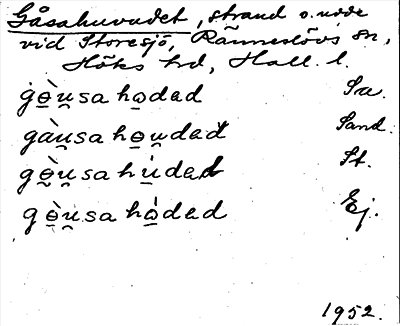 Gåsahuvudet, strand o. udde
vid Storesjö, Ränneslövs sn,
Höks hd, Hall. l.
gɵ̀u̯sa hɵdəd Sa.
gàu̯sa hɵu̯dəd Sand.
gɵ̀u̯sa hu̇dəd St.
gɵ̀u̯sa hɵ̇dəd Ej.
1952.